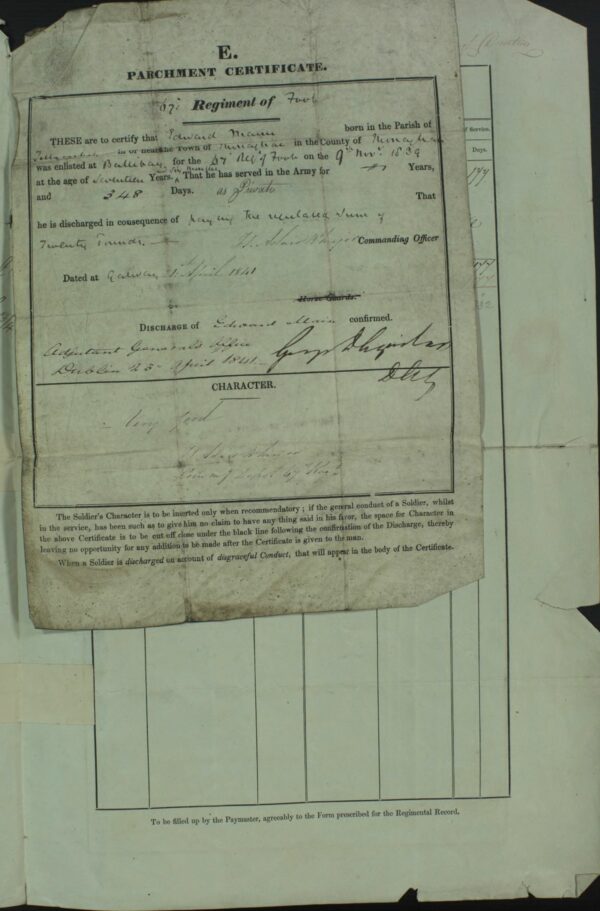 E.
PARCHMENT CERTIFICATE.
67th Regiment of Foot
THESE are to certify that Edward Mann born in the Parish of
in or near the Town of Monaghan in the County of Monaghan
was enlisted at Ballibay for the 67 Regt of Foot on the 9th Novr 1839
at the age of Seventeen Years, & Six Months That he has served in the Army for Years,
and 348 Days. as Private That
he is discharged in consequence of paying the regulated Sum of
Twenty Pounds.
Commanding Officer
Dated at Galway 1st April 1841
Horse Guards.
DISCHARGE of Edward Mann confirmed.
Adjutant General's Office
Dublin 23d April 1841
CHARACTER.
Very good
67 Regt
The Soldier's Character is to be inserted only when recommendatory; if the general conduct of a Soldier, whilst
in the service, has been such as to give him no claim to have any thing said in his favor, the space for Character in
the above Certificate is to be cut off close under the black line following the confirmation of the Discharge, thereby
leaving no opportunity for any addition to be made after the Certificate is given to the man.
When a Soldier is discharged on account of disgraceful Conduct, that will appear in the body of the Certificate.
of Service.
Days.
177
To be filled up by the Paymaster, agreeably to the Form prescribed for the Regimental Record.